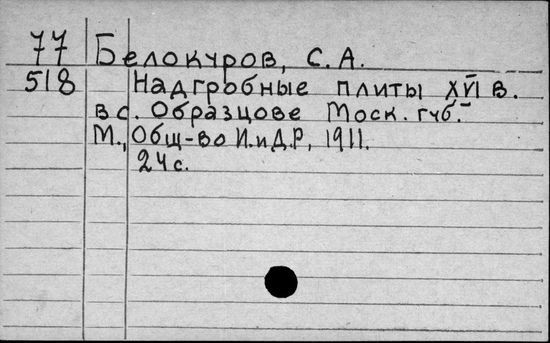 77 Белокуров, С. А.
518 Надгробные плиты XVI в.
в с. Образцове Моск. губ.
М., Общ-во И.и Д.Р, 1911.
24 с.